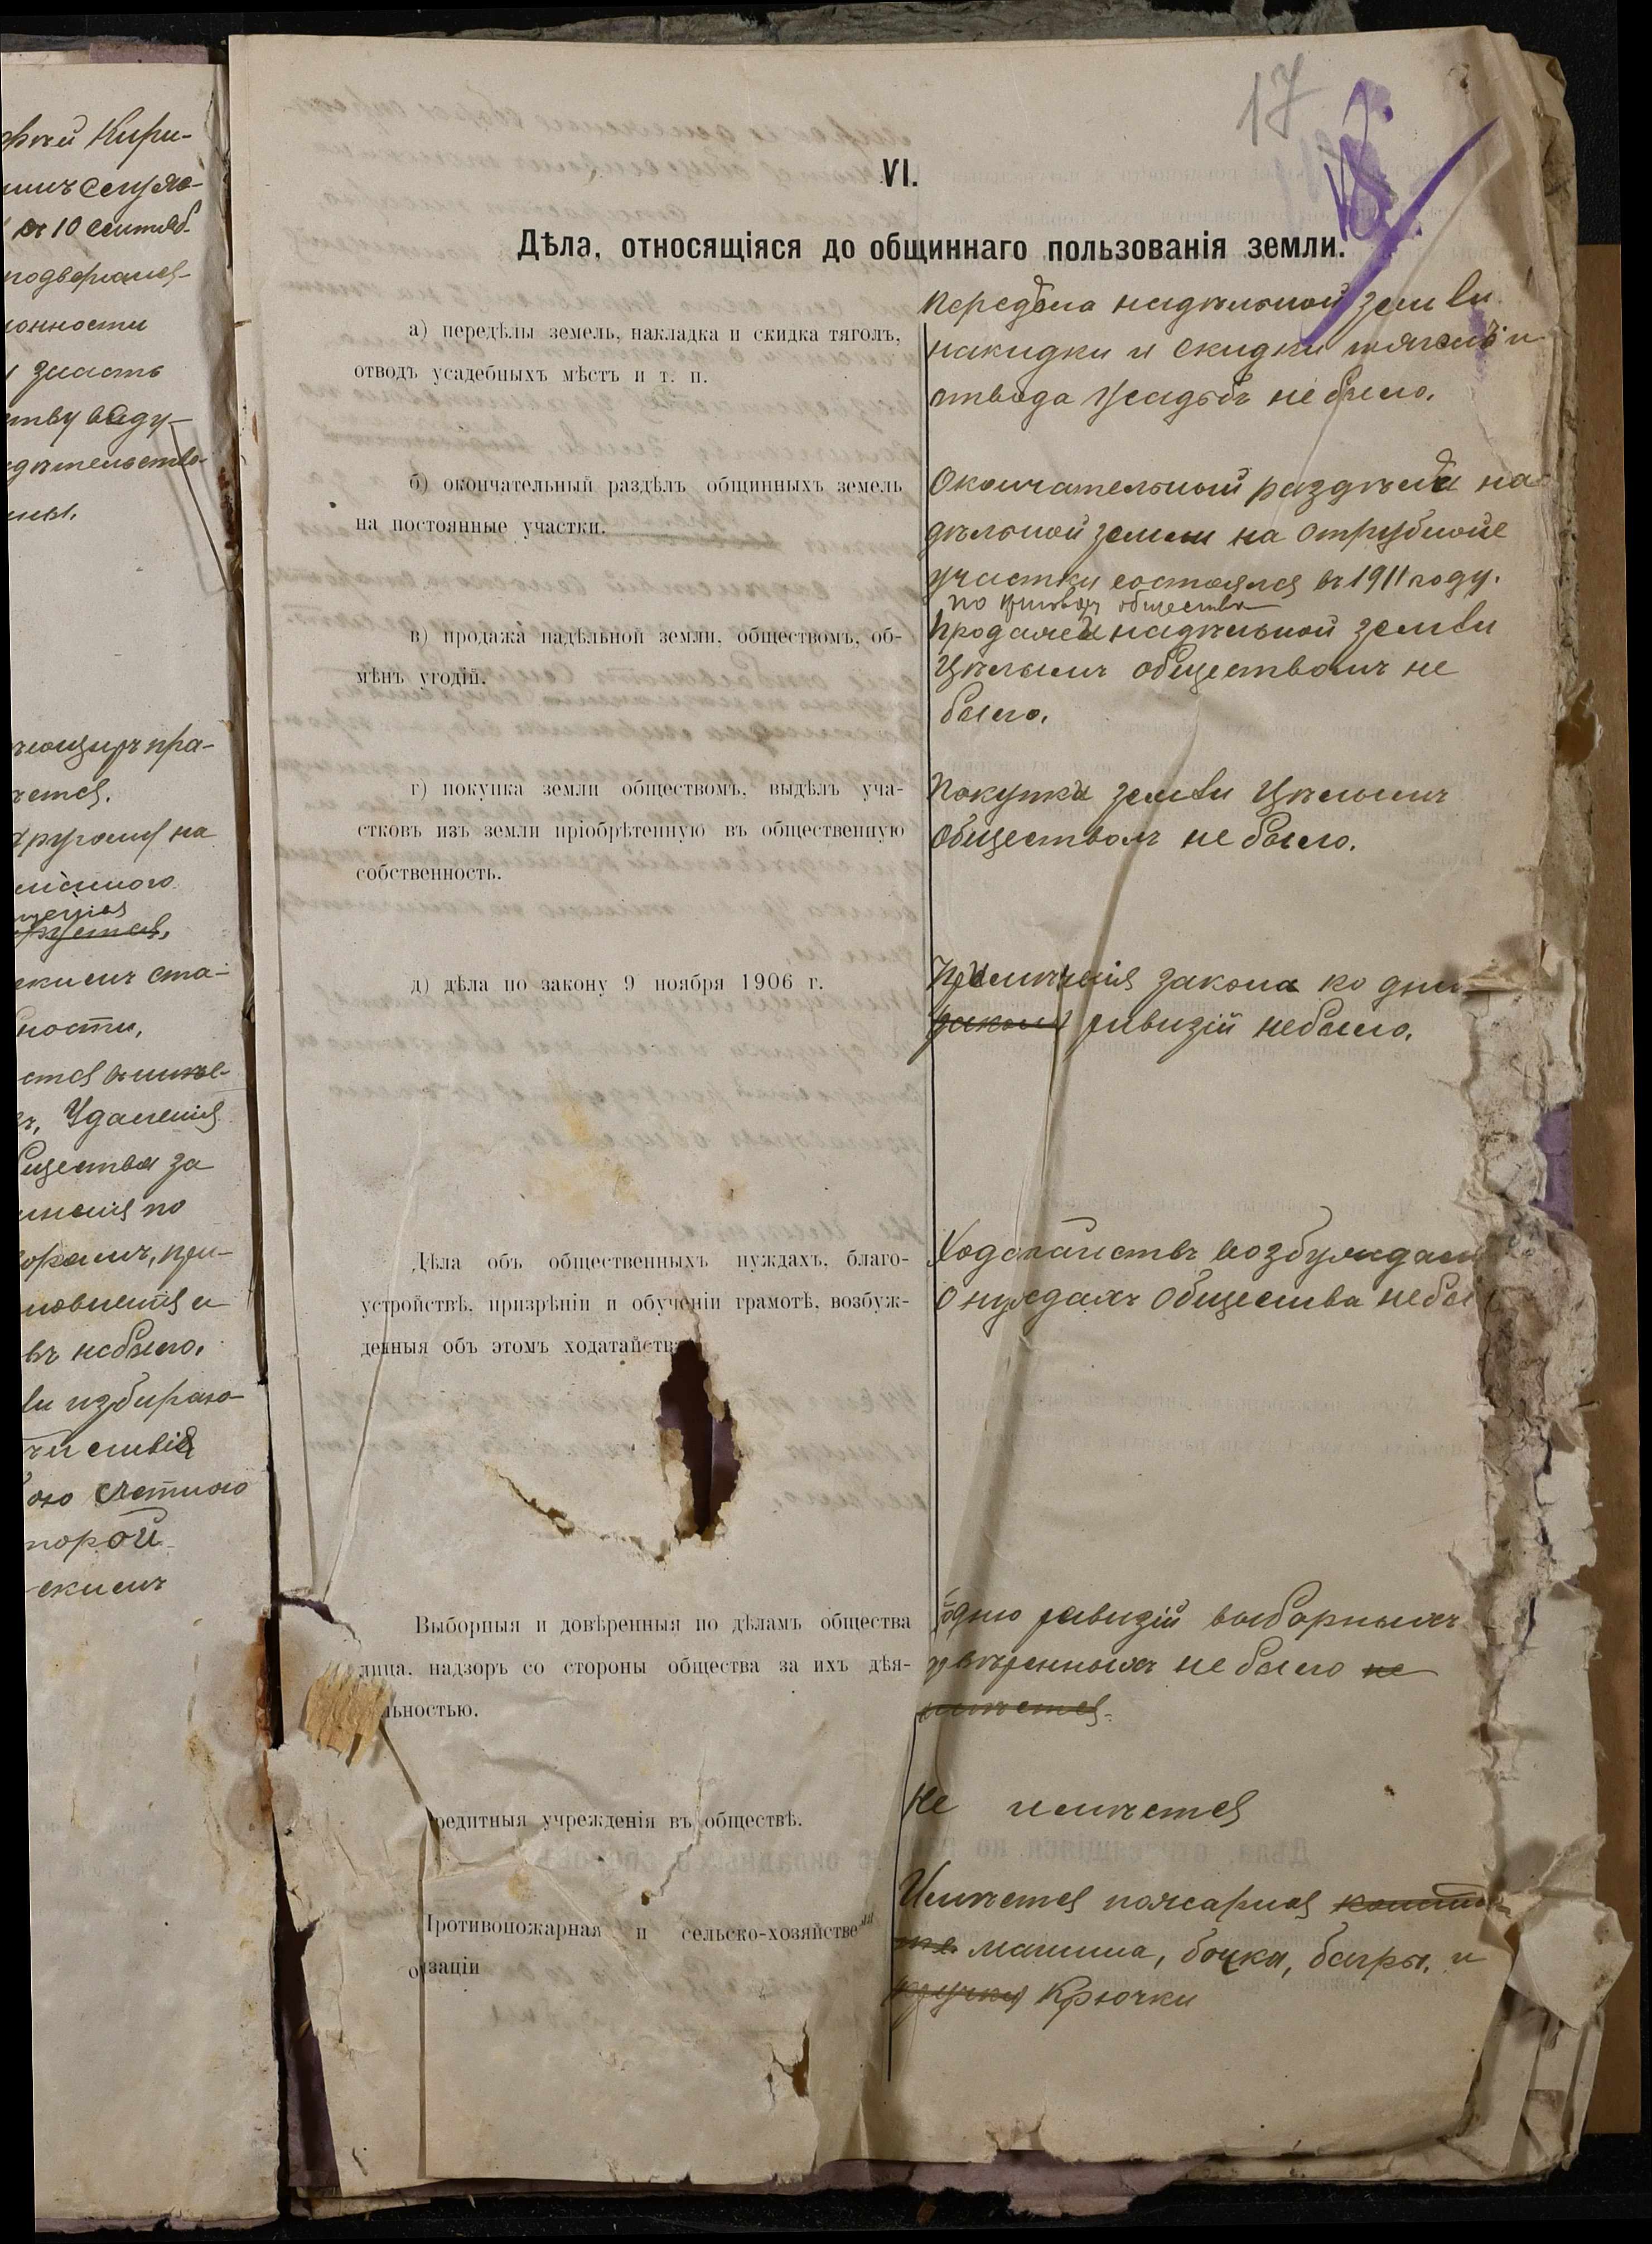 фній Кири-
10 Сентяб.
подвергался
знать
ству
ны.
пра-
ется.
другому на
ста-
ности,
Удаленія
бщества за
по
при-
въ небыло.
избираю-
17
VI.
Дѣла, относящіяся до общиннаго пользованія земли.
а) передѣлы земель, накладка и скидка тяголъ,
отводъ усадебныхъ мѣстъ и т. п.
передѣла надѣльной земли
накидки и скидки тяголъ и
отвода усадьбъ не было.
б) окончательный раздѣлъ общинныхъ земель
на постоянные участки.
Окончательный раздѣлъ на-
дѣльной земли на отрубные
участки состоялся въ 1911 году.
по общества
в) продажа надѣльной земли, обществомъ, об-
мѣнъ угодій.
Продажи надѣльной земли
цѣлымъ обществомъ не
было.
г) покупка земли обществомъ, выдѣлъ уча-
стковъ изъ земли пріобрѣтенную въ общественную
собственность.
Покупки земли цѣлымъ
обществомъ не было.
д) дѣла по закону 9 ноября 1906 г.
Примѣненія закона ко дню
закона ривизіи небыло.
Дѣла объ общественныхъ нуждахъ, благо-
устройствѣ, призрѣніи и обученіи грамотѣ, возбуж-
денныя объ этомъ ходатайства
Ходатайствъ возбуждаемыхъ
о нуждахъ общества небыло
Выборныя и довѣренныя по дѣламъ общества
лица, надзоръ со стороны общества за ихъ дѣя-
льностью.
дню ривизіи выборныхъ
довѣренныхъ не было не
имѣется.
редитныя учрежденія въ обществѣ.
Не имѣется
Противопожарная и сельско-хозяйстве
изаціи
Имѣется пожарная
машина, бочка, багры, и
крючки Крючки